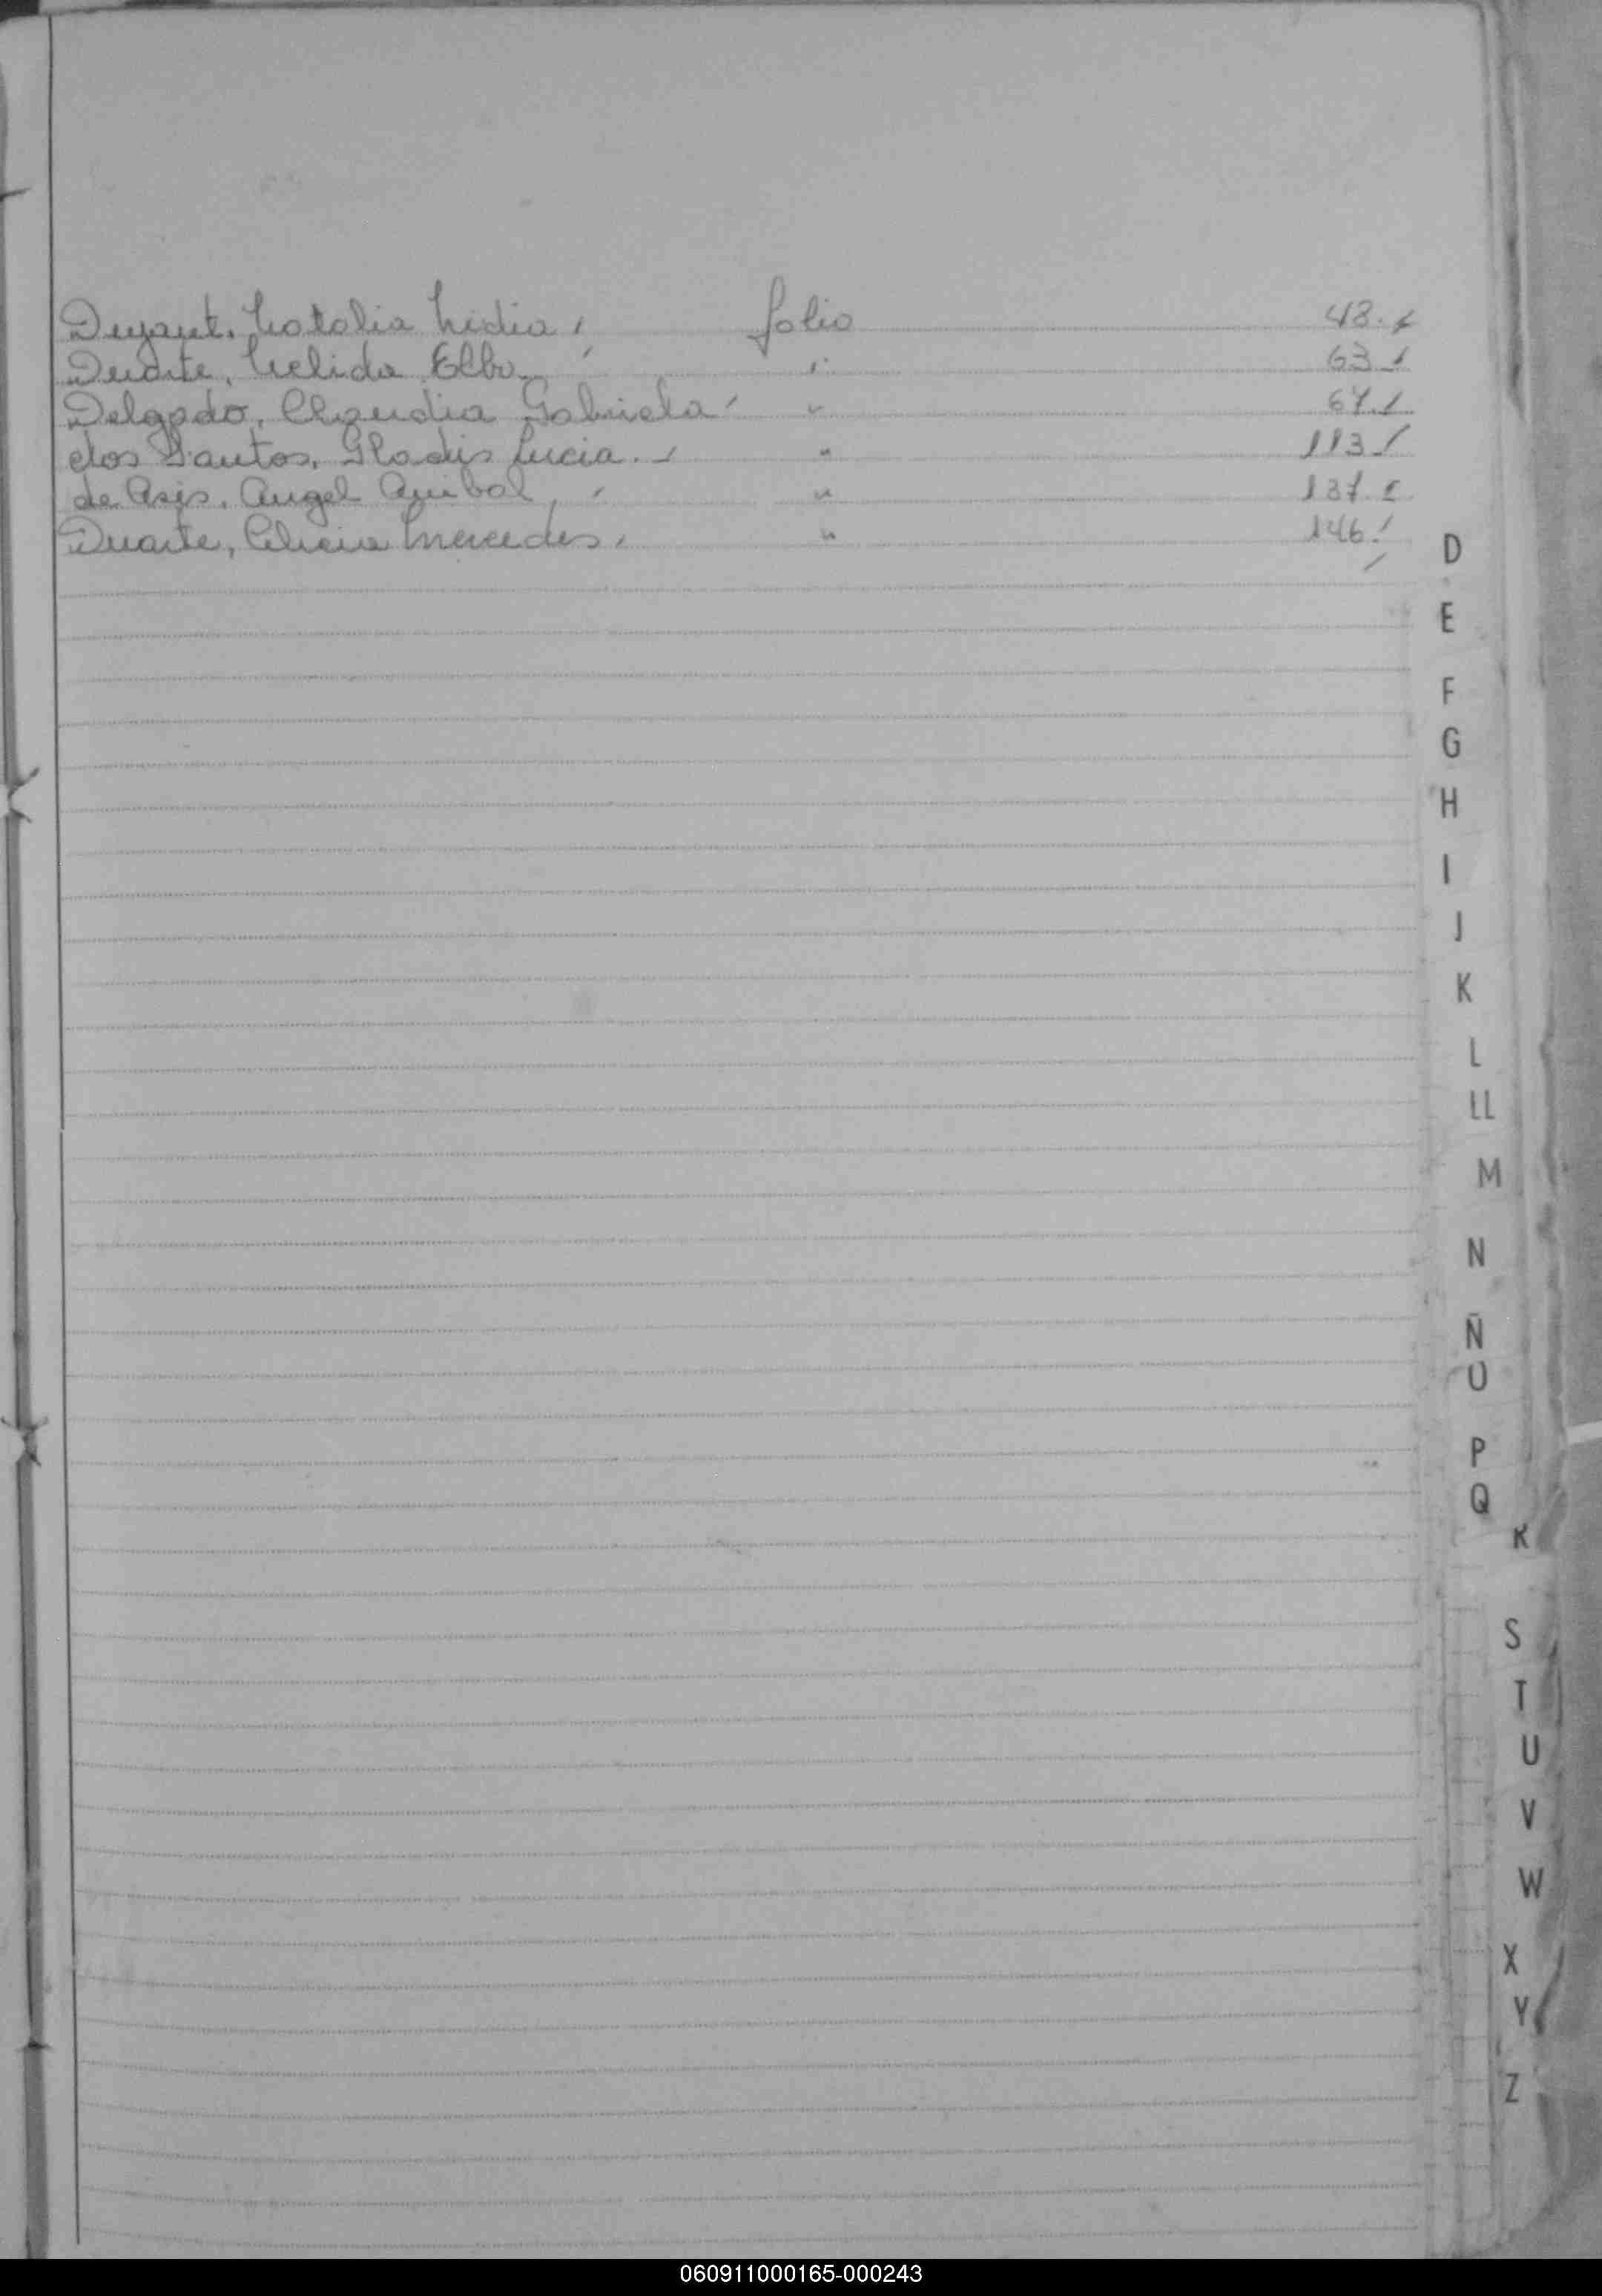 Natalia Nidia, folio 48.
Duarte, Nelida Elba " 63
Delgado, Claudia Gabriela " 67
dos Santos, Gladis Lucia. " 113
de Asis, Angel Anibal, " 137
Duarte, Mercedes. " 146
D
E
F
G
H
I
J
K
L
LL
M
N
Ñ
O
P
Q
R
S
T
U
V
W
X
Y
Z
060911000165-000243